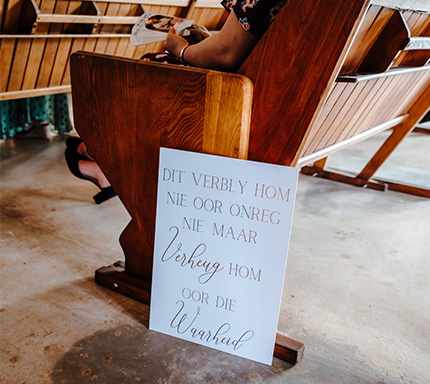 DIT VERBLY HOM
NIE OOR ONREG
NIE MAAR
Verheug HOM
OOR DIE
Waarheid